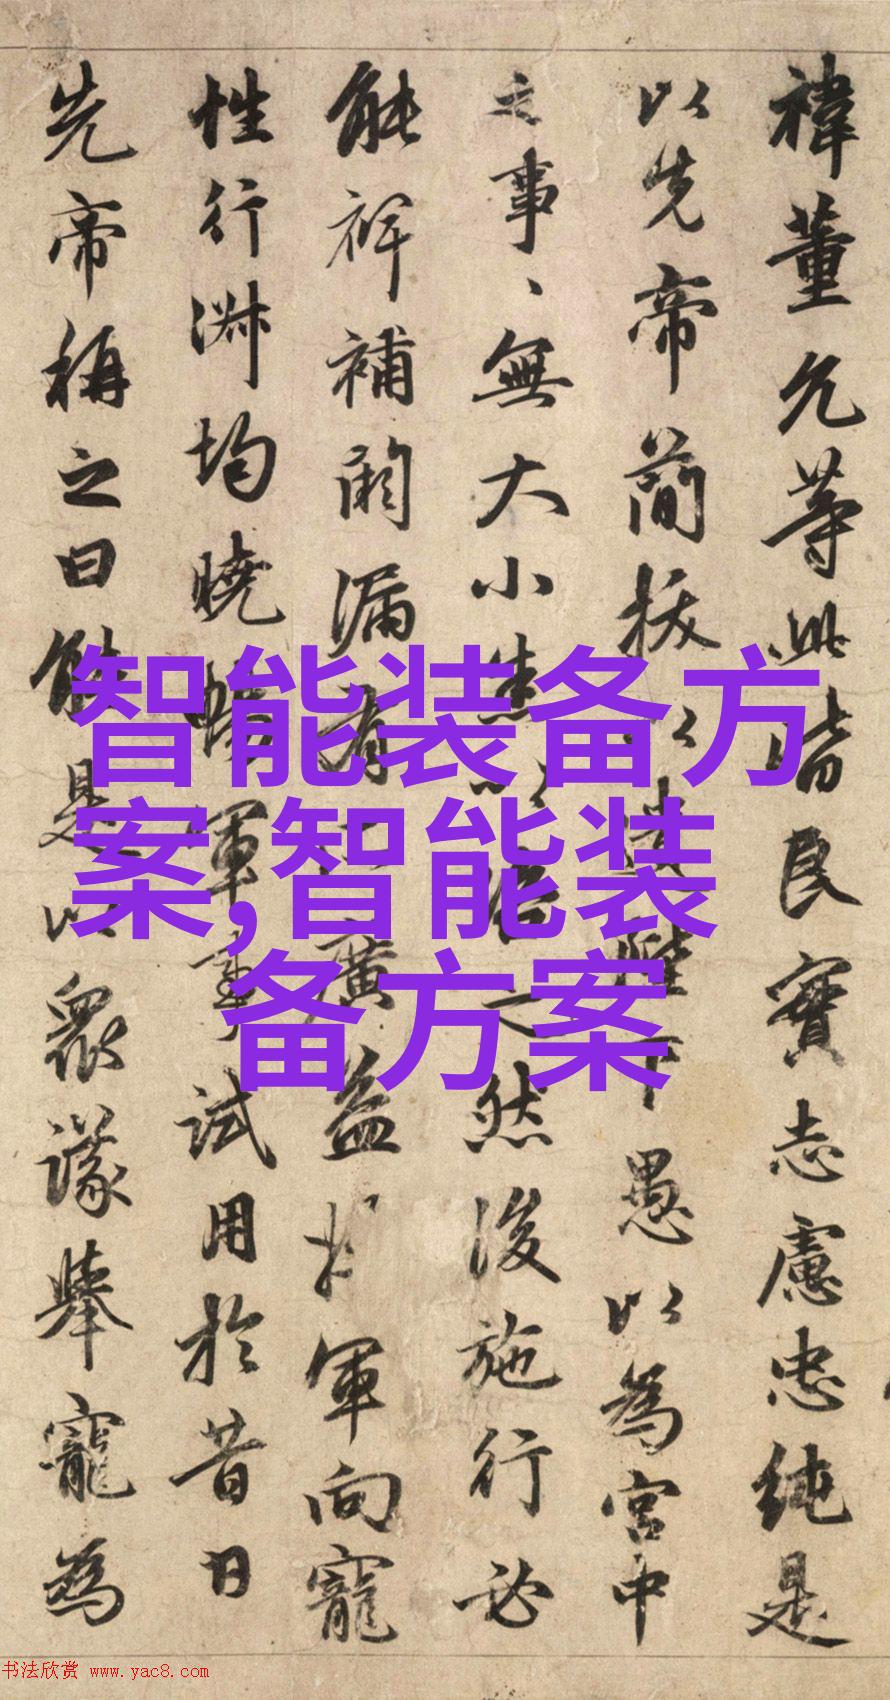 禕董允等此皆良實志慮忠純是
以先帝簡拔以遺陛下愚以為宮中
之事、無大小悉以咨之然後施行必
能裨補闕漏有廣益將軍向寵
性行淋均曉暢軍事試用於昔日
先帝稱之曰能是以眾議舉寵為
智能装备方
案,智能装
备方案
书法欣赏 www.yac8.com